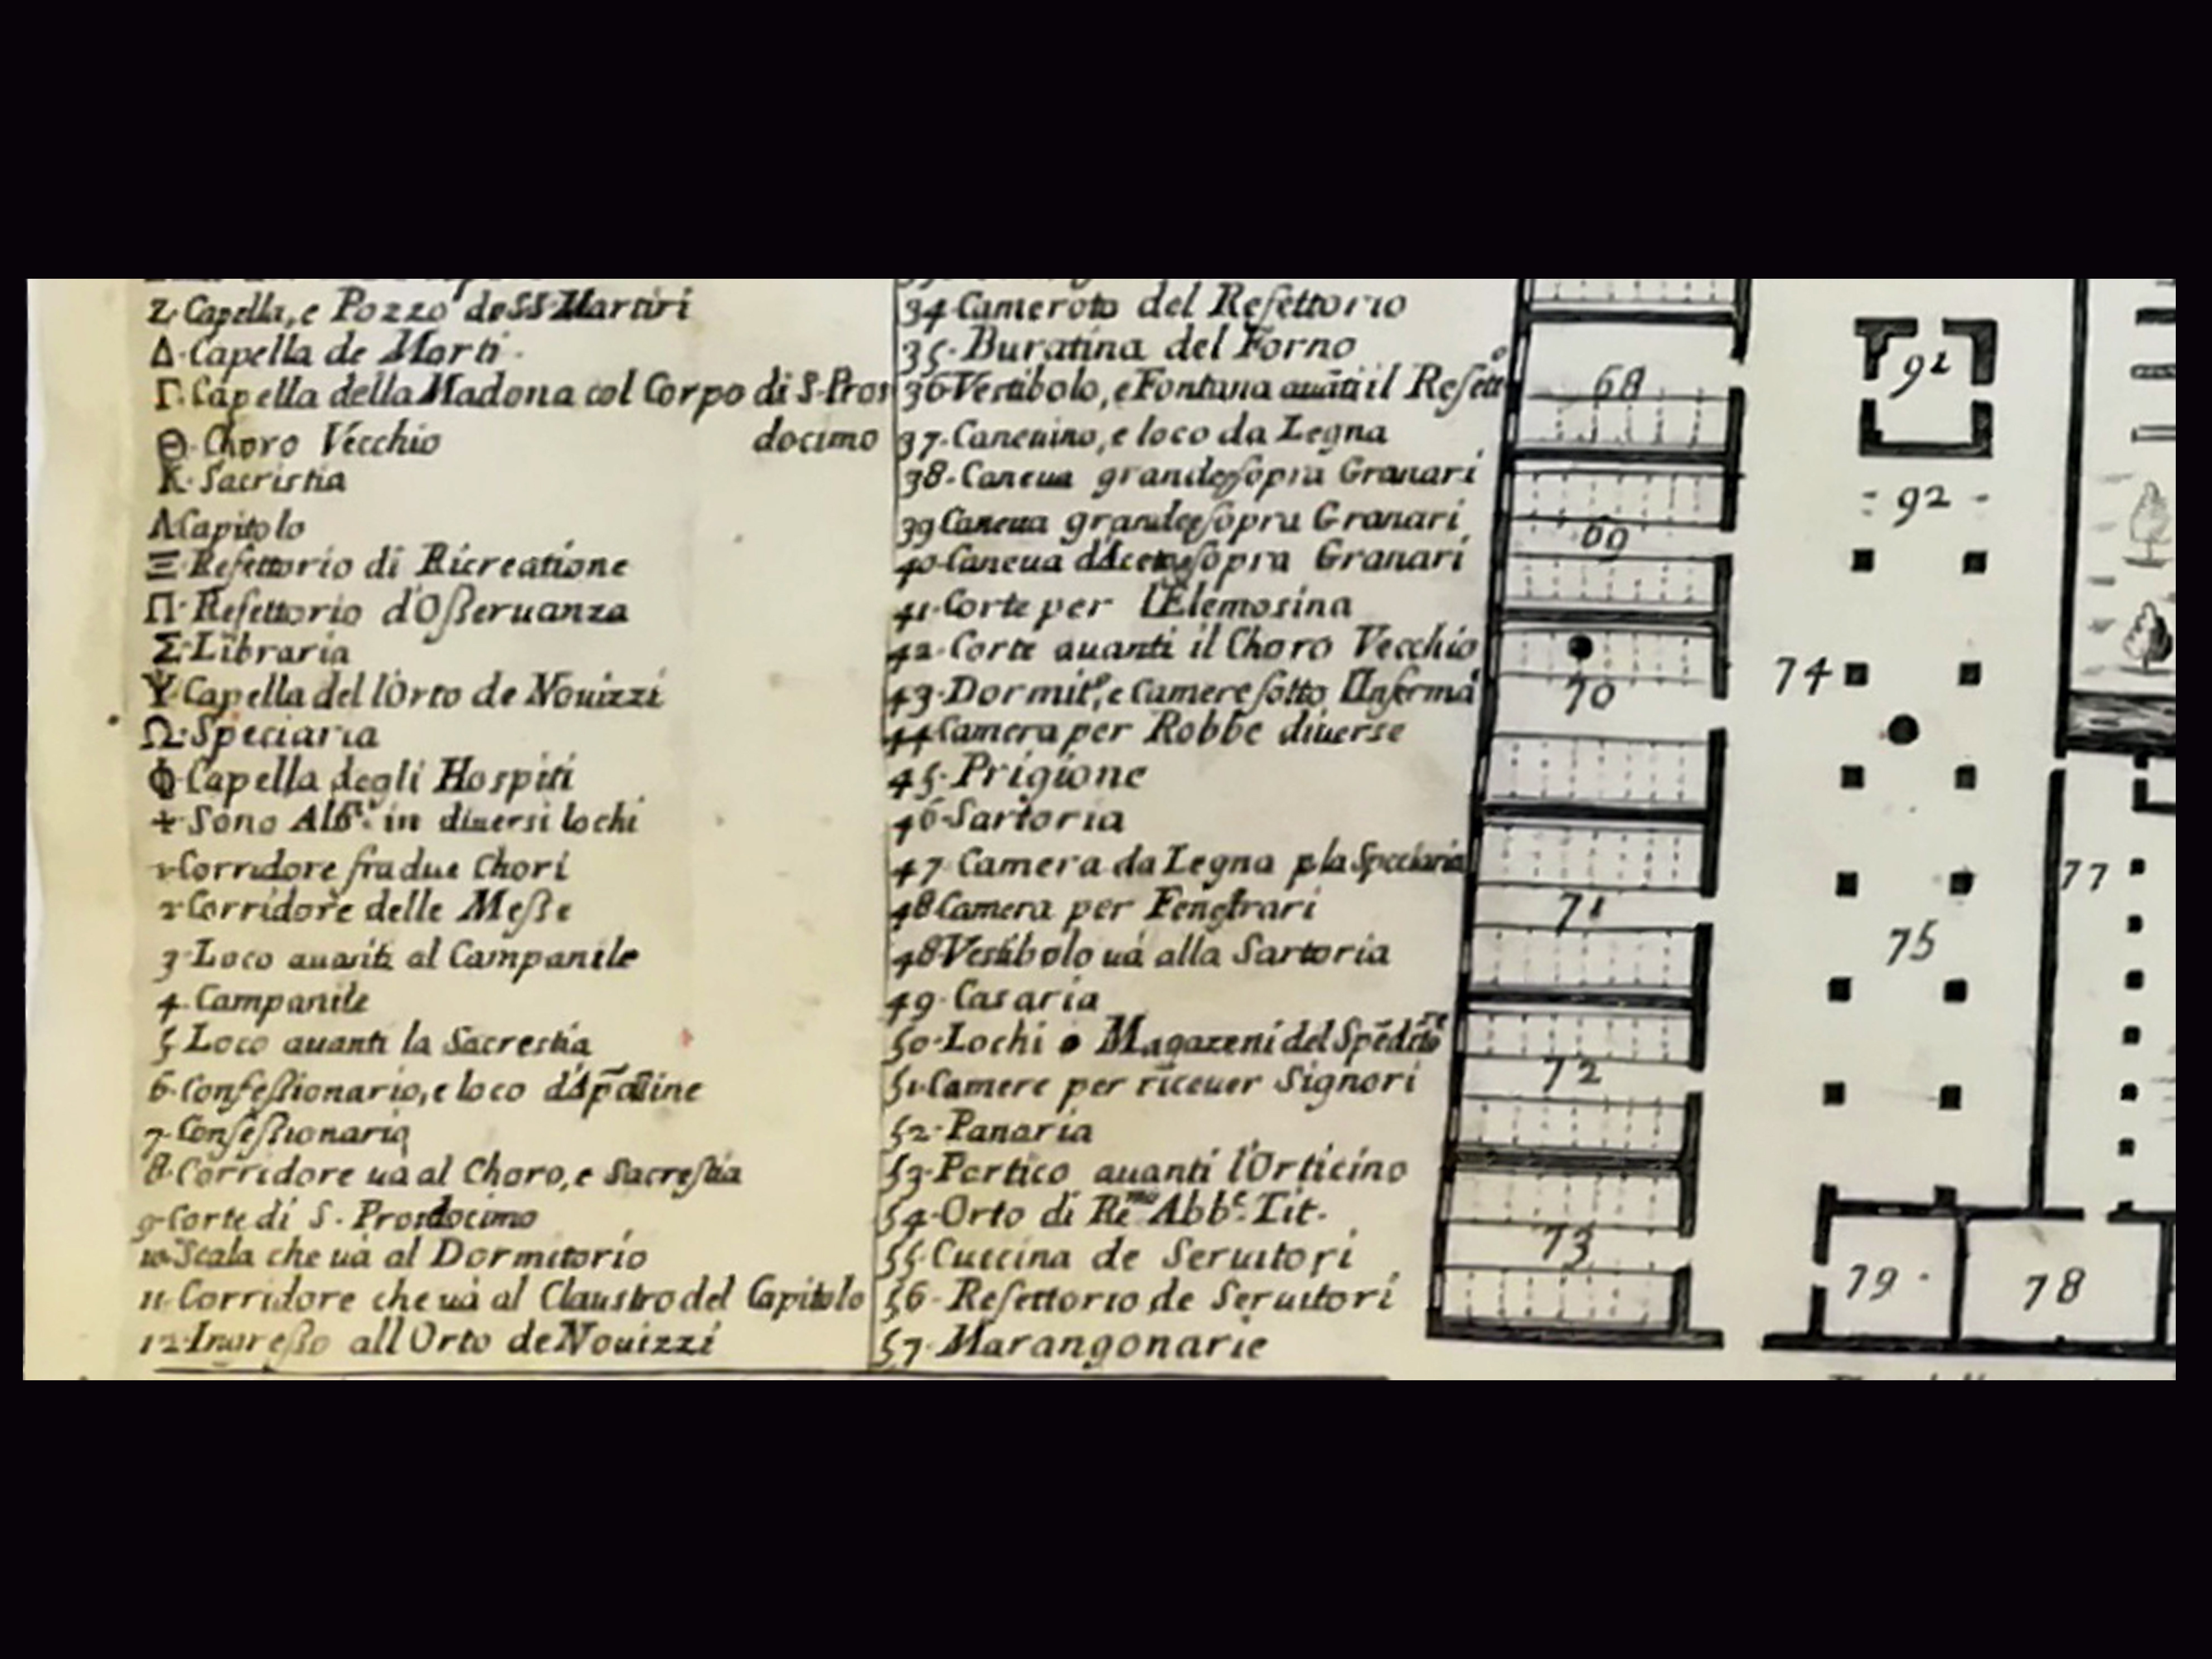 Z. Capella, e Pozzo de SS Martiri
Δ. Capella de Morti.
Γ. Capella della Madona col Corpo di S. Pros
docimo
Θ. Choro Vecchio
K. Sacristia
Λ Capitolo
Ξ Refettorio di Ricreatione
Π. Refettorio d'Oſſeruanza
Σ. Libraria
Ψ. Capella dell'Orto de Nouizzi
Ω. Speciaria
Φ. Capella degli Hospiti
+ Sono in diuersi lochi
1 Corridore fra due Chori
2 Corridore delle Meſſe
3. Loco auanti al Campanile
4. Campanile
5 Loco auanti la Sacrestia
6. Confeſſionario, e loco
7. Confeſſionario
8. Corridore uà al Choro, e Sacreſtia
9. Corte di S. Prosdocimo
10. Scala che uà al Dormitorio
11. Corridore che uà al Claustro del Capitolo
12. Ingreſſo all Orto de Nouizzi
34. Cameroto del Refettorio
35. Buratina del Forno
36 Vestibolo, e Fontana auāti il Refettº
37. Caneuino, e loco da Legna
38. Caneua grande ſopra Granari
39 Caneua grande ſopra Granari
40. Caneua ſopra Granari
41. Corte per l'Elemosina
42. Corte auanti il Choro Vecchio
43. Dormitº, e Camere ſotto l'Inferma
44 Camera per Robbe diuerse
45. Prigione
46. Sartoria
47 Camera da Legna p la Speciaria
48 Camera per Feneſtrari
48 Vestibolo uà alla Sartoria
49. Casaria
50. Lochi o Magazeni del
51. Camere per riceuer Signori
52. Panaria
53. Portico auanti l'Orticino
54. Orto di Rēmo Abbe. Tit.
55. Cuccina de Seruitori
56. Refettorio de Seruitori
57. Marangonarie
68
69
70
71
72
73
92
92
74
75
77
79
78